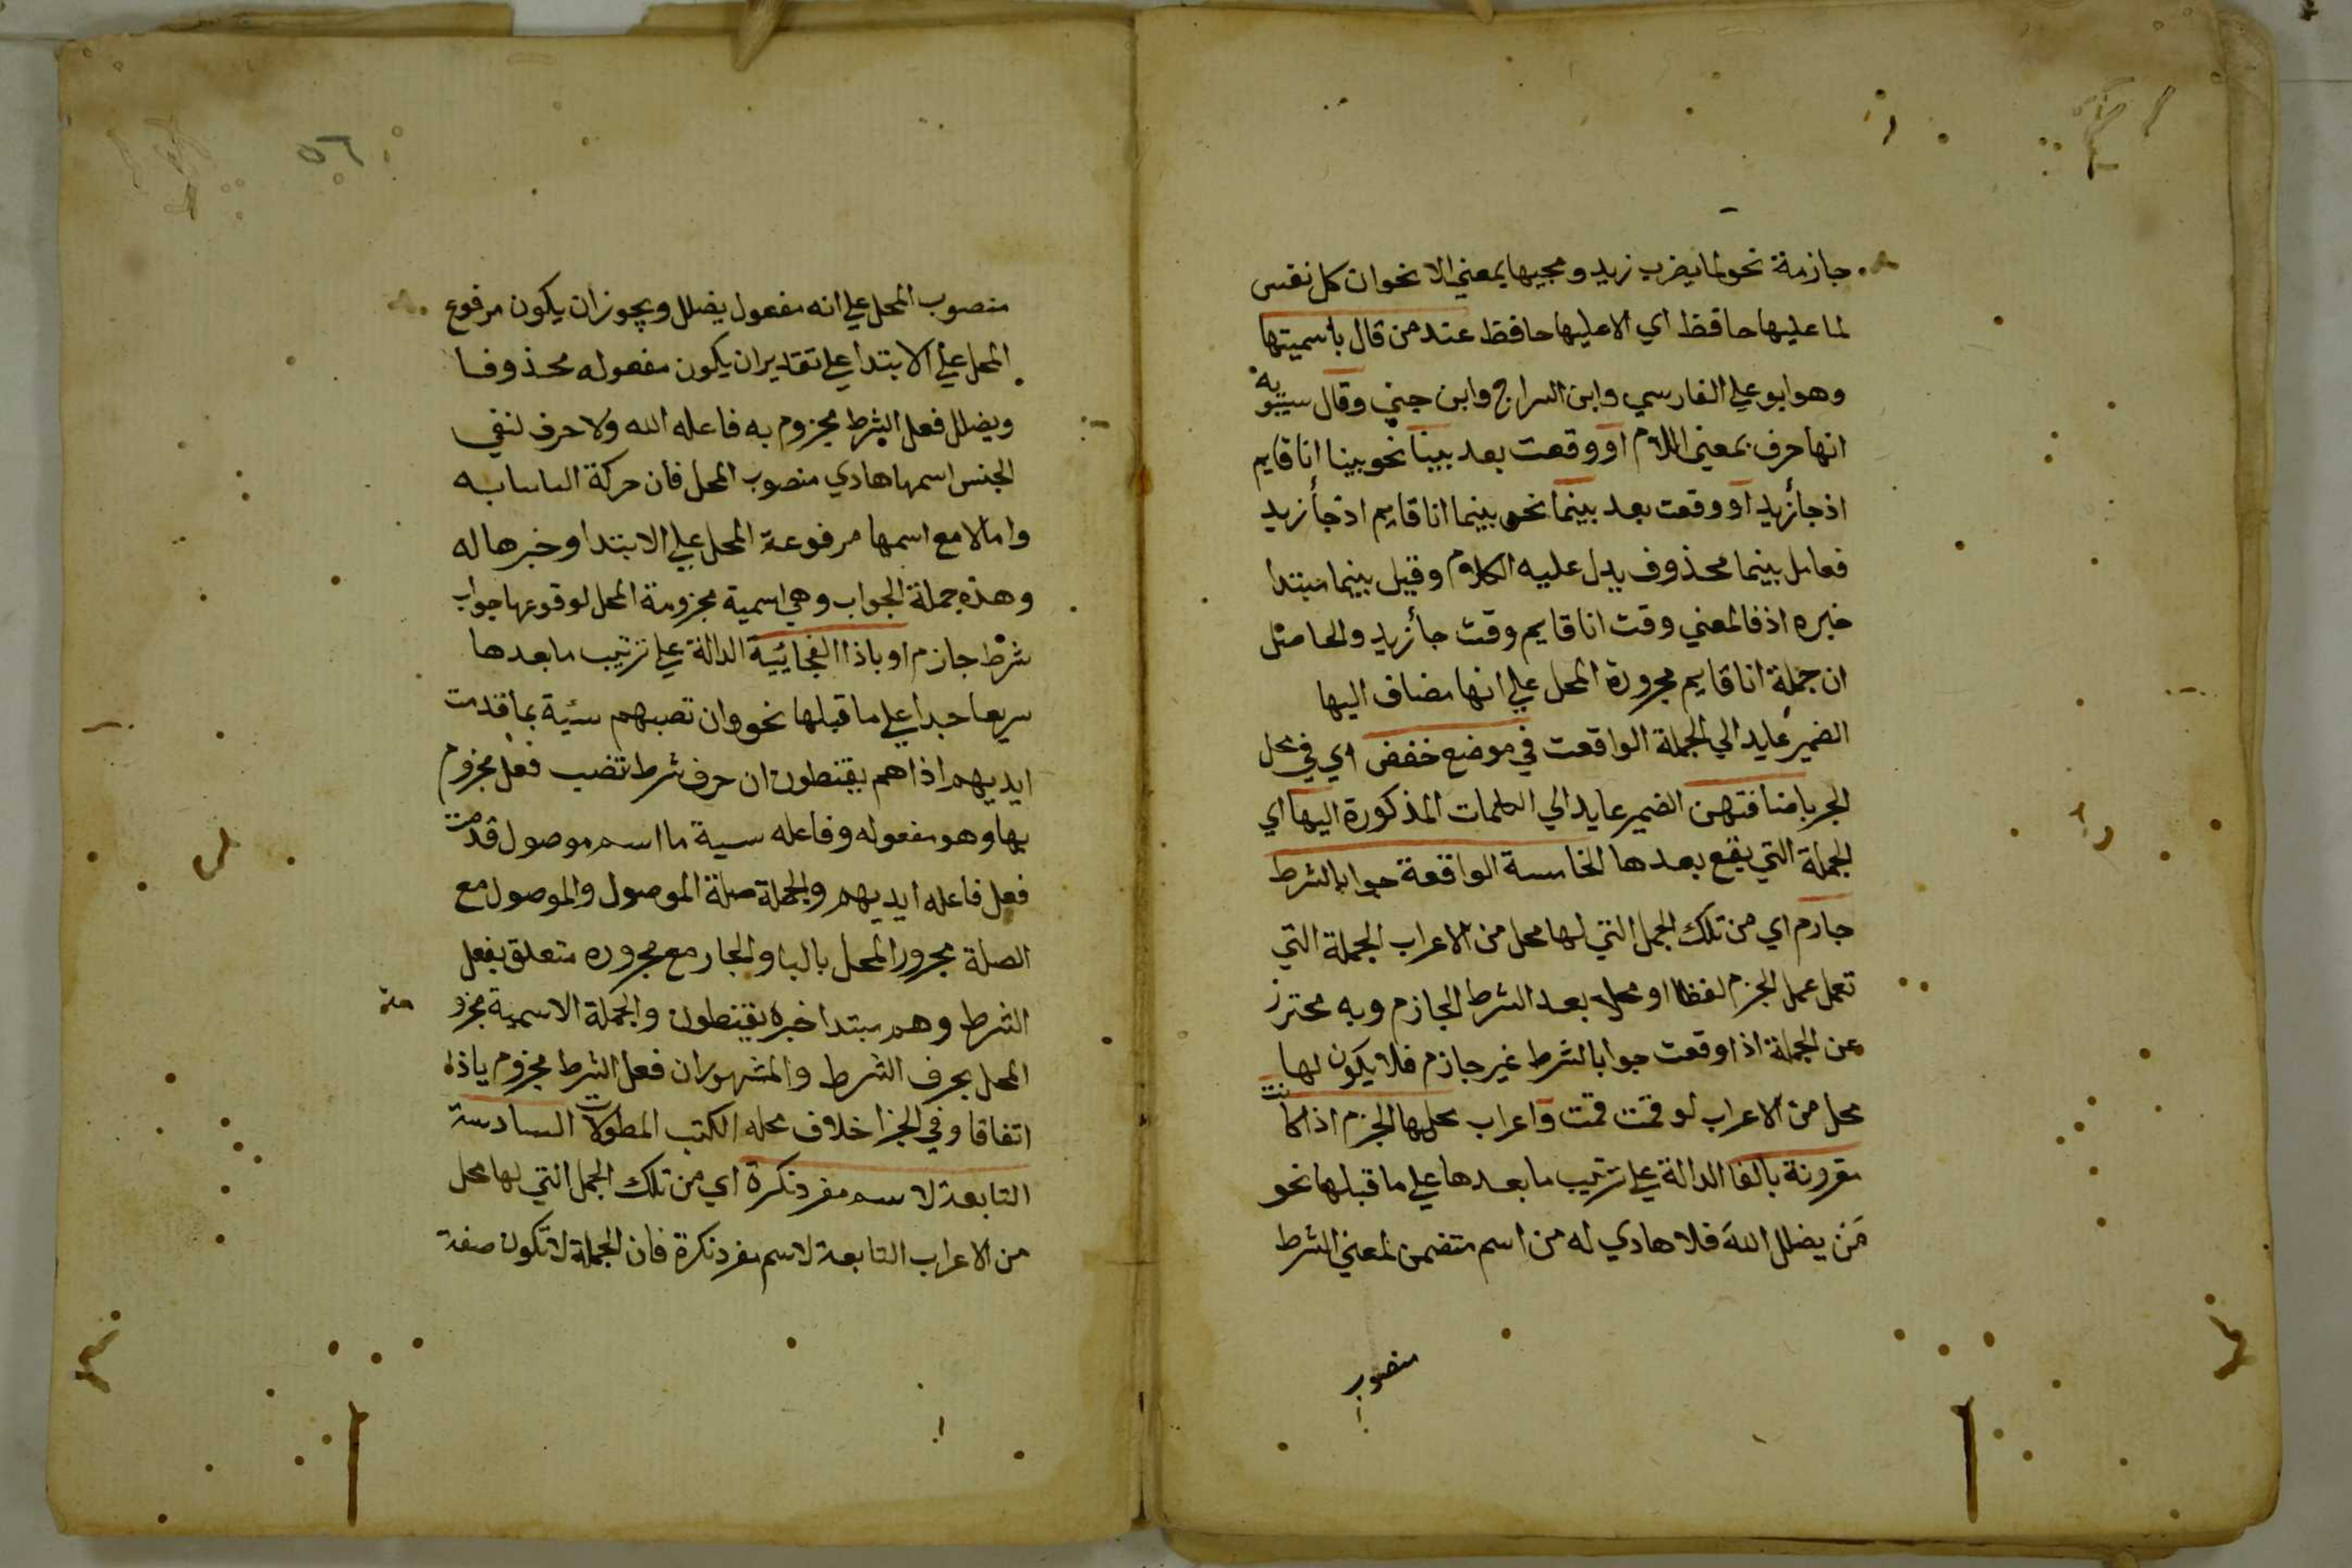 جازمة نحو لما يضرب زيد ومجيها بمعني الا نحو ان كل نفس
لما عليها حافظ اي الا عليها حافظ عند من قال باسميتها
وهو ابو علي الفارسي وابن السراج وابن جني وقال سيبويه
انها حرف بمعني اللام او وقعت بعد بينا نحو بينا انا قايم
اذ جأ زيد او وقعت بعد بينما نحو بينما انا قايم اذ جأ زيد
فعامل بينما محذوف يدل عليه الكلام وقيل بينما مبتدا
خبره اذ فالمعني وقت انا قايم وقت جأ زيد والحاصل
ان جملة انا قايم مجرورة المحل علي انها مضاف اليها
الضمير عايد الي الجملة الواقعت في موضع خفض اي في محل
الجر باضافتهن الضمير عايد الي الكلمات المذكورة اليها اي
الجملة التي يقع بعدها الخامسة الواقعة جوابا لشرط
جازم اي من تلك الجمل التي لها محل من الاعراب الجملة التي
تعمل عمل الجزم لفظا او محلا بعد الشرط الجازم وبه محترز
عن الجملة اذا وقعت جوابا لشرط غير جازم فلا يكون لها
محل من الاعراب لو قمت قمت واعراب محلها الجزم اذا كانت
مقرونة بالفا الدالة علي ترتيب ما بعدها علي ما قبلها نحو
مَن يضلل اللهَ فلا هادي له من اسم متضمن لمعني الشرط
منصوب
٥٦
منصوب المحل علي انه مفعول يضلل ويجوز ان يكون مرفوع
المحل علي الابتدا علي تقدير ان يكون مفعوله محذوفا
ويضلل فعل الشرط مجزوم به فاعله الله ولا حرف لنفي
الجنس اسمها هادي منصوب المحل فان حركة البنائيه
واما لا مع اسمها مرفوعة المحل علي الابتدا وخبرها له
وهذه جملة الجواب وهي اسمية مجزومة المحل لوقوعها جواب
شرط جازم او باذا الفجائيية الدالة علي ترتيب ما بعدها
سريعا جدا علي ما قبلها نحو وان تصبهم سئية بما قدمت
ايديهم اذا هم يقنطون ان حرف شرط تصب فعل مجزوم
بها وهو مفعوله وفاعله سية ما اسم موصول قدمت
فعل فاعله ايديهم والجملة صلة الموصول والموصول مع
الصلة مجرور المحل بالبا والجار مع مجروره متعلق بفعل
الشرط وهم مبتدا خبره يقنطون والجملة الاسمية مجزو مة
المحل بحرف الشرط والمشهور ان فعل الشرط مجزوم باذا
اتفاقا وفي الجزا خلاف محله الكتب المطولات السادسة
التابعة لاسم مفرد نكرة اي من تلك الجمل التي لها محل
من الاعراب التابعة لاسم مفرد نكرة فان الجملة لا تكون صفة